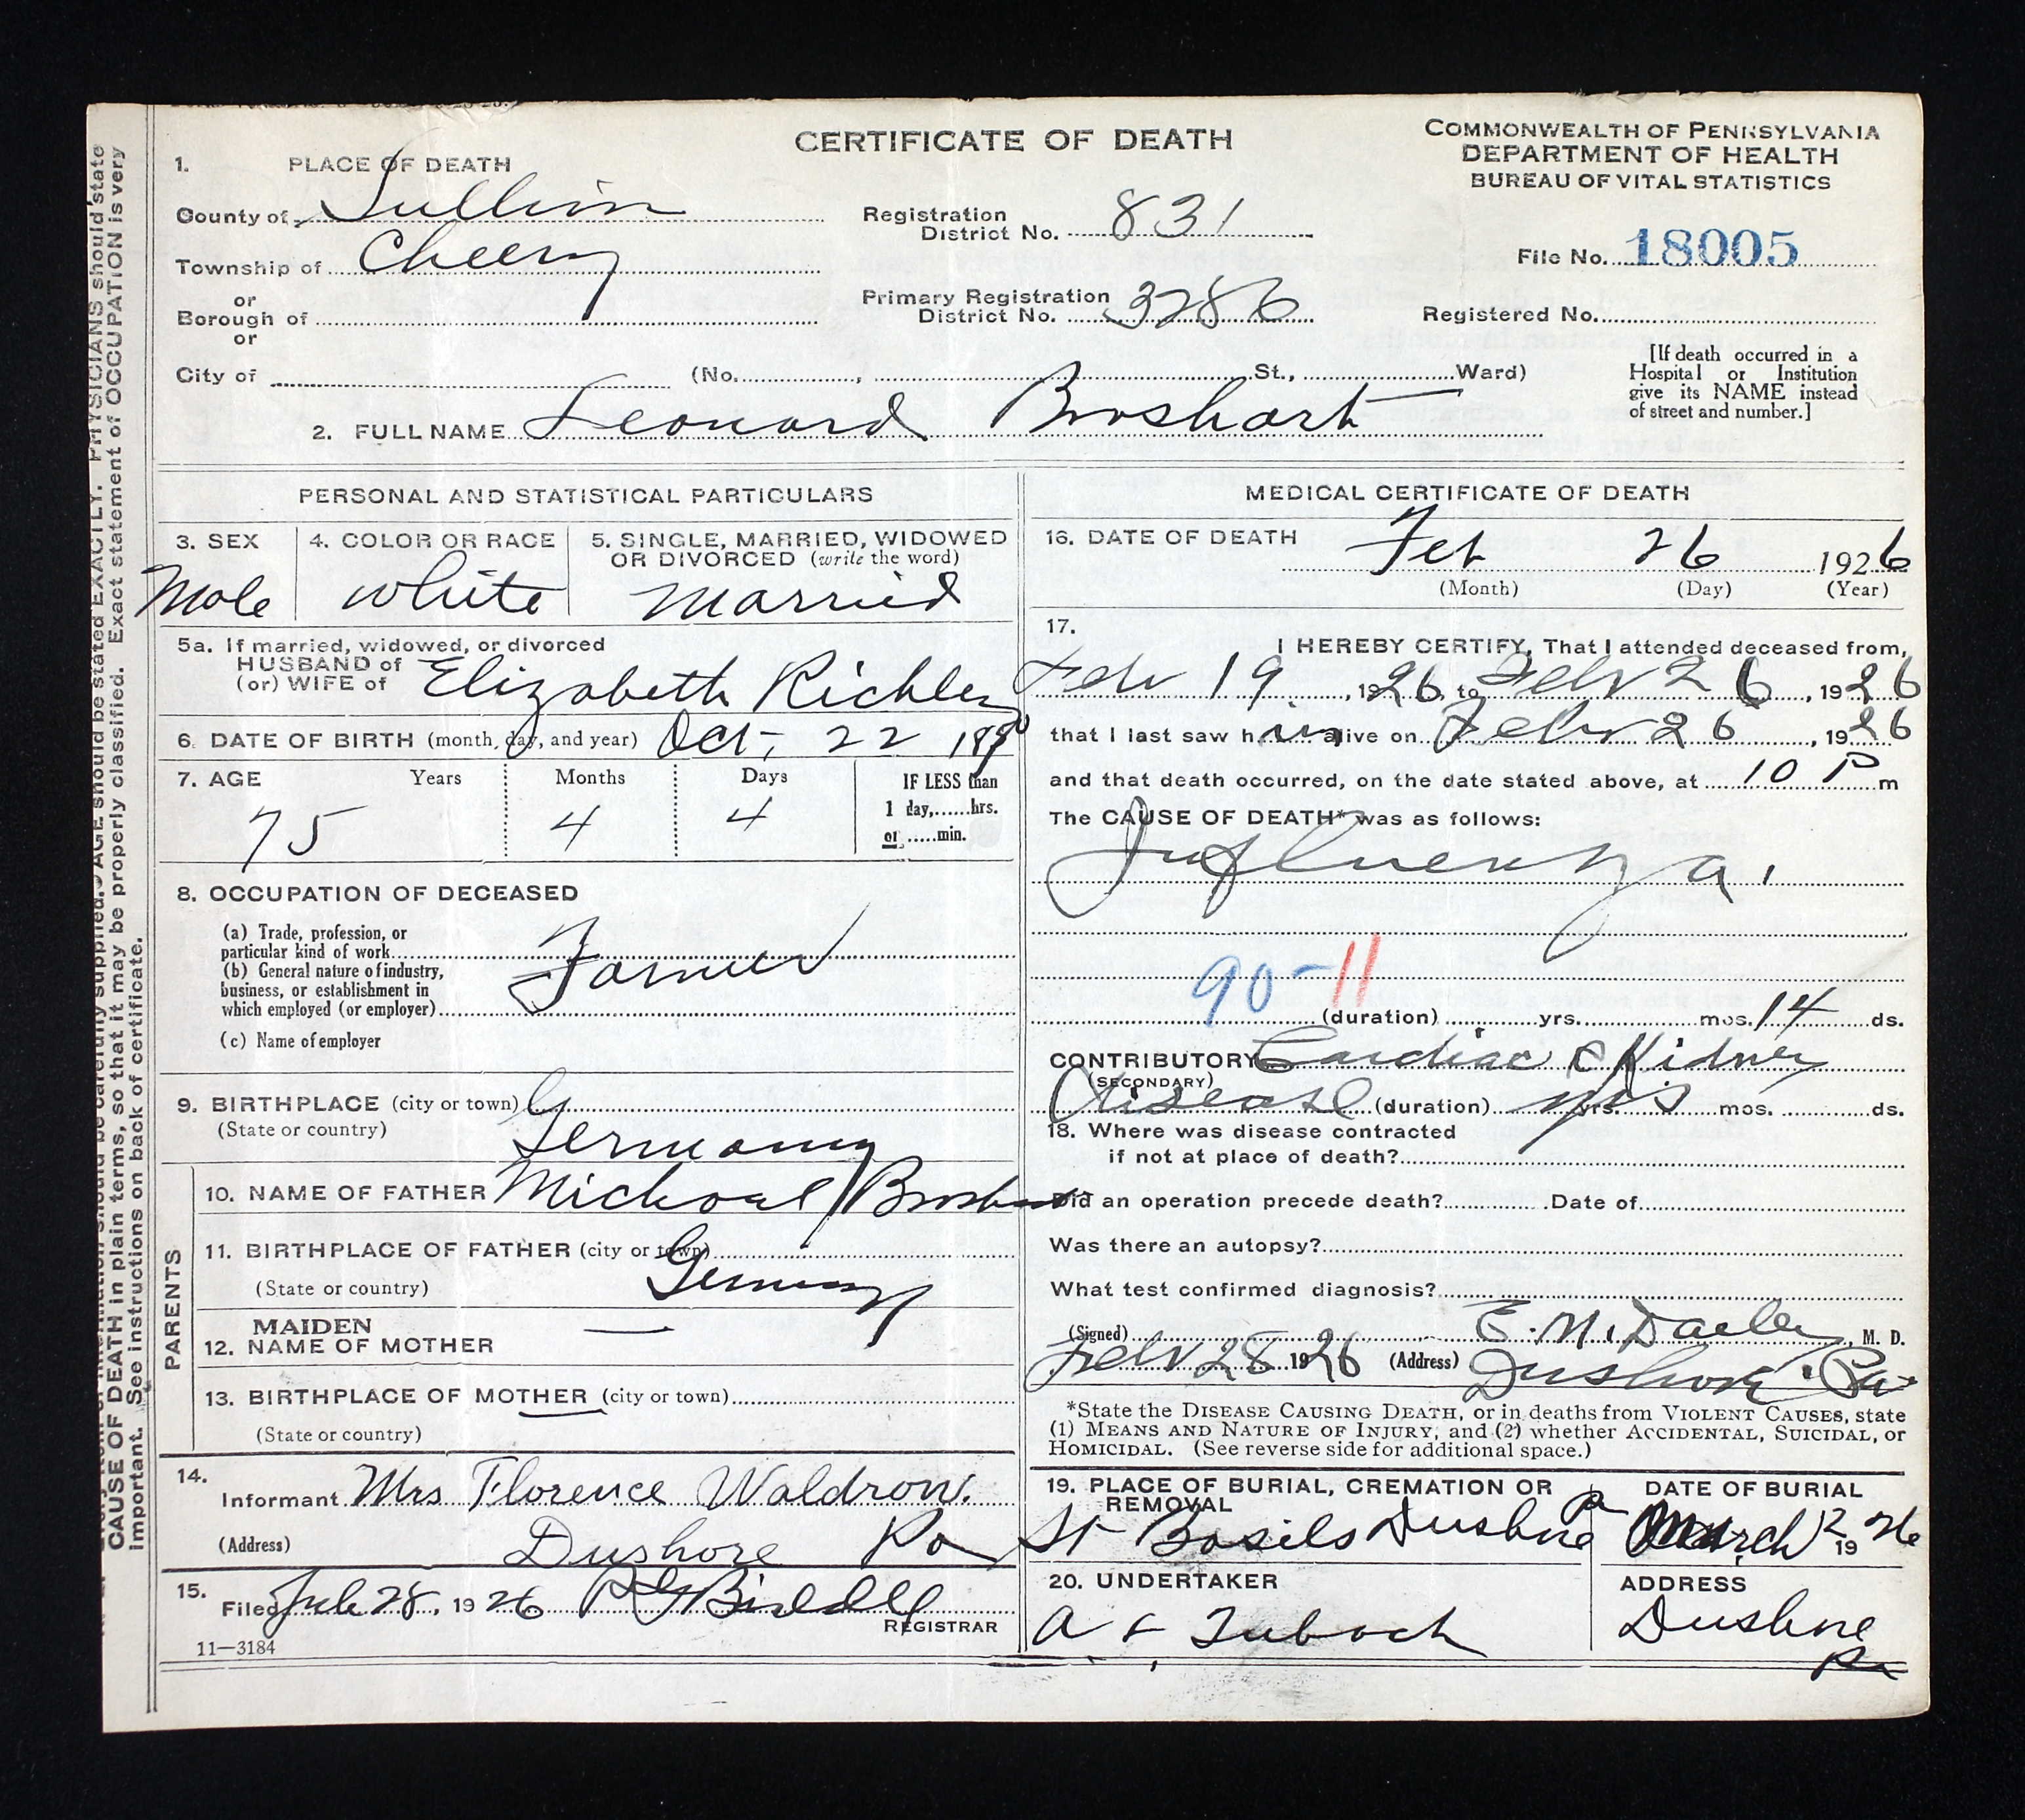 CERTIFICATE OF DEATH
COMMONWEALTH OF PENNSYLVANIA
DEPARTMENT OF HEALTH
BUREAU OF VITAL STATISTICS
1. PLACE OF DEATH
County of Sullivan
Township of Cherry
or
Borough of
or
City of (No. , St., Ward)
Registration District No. 831
Primary Registration District No. 3286
File No. 18005
Registered No.
[If death occurred in a
Hospital or Institution
give its NAME instead
of street and number.]
2. FULL NAME Leonard Boshart
PERSONAL AND STATISTICAL PARTICULARS
3. SEX Male
4. COLOR OR RACE white
5. SINGLE, MARRIED, WIDOWED
OR DIVORCED (write the word) Married
5a. If married, widowed, or divorced
HUSBAND of
(or) WIFE of Elizabeth
6. DATE OF BIRTH (month, day, and year) Oct, 22
7. AGE Years Months Days
75 4 4
IF LESS than
1 day,......hrs.
or......min.
8. OCCUPATION OF DECEASED
(a) Trade, profession, or
particular kind of work
(b) General nature of industry,
business, or establishment in
which employed (or employer)
Farmer
(c) Name of employer
9. BIRTHPLACE (city or town)
(State or country) Germany
PARENTS
10. NAME OF FATHER Michael
11. BIRTHPLACE OF FATHER (city or town)
(State or country) Germany
MAIDEN
12. NAME OF MOTHER —
13. BIRTHPLACE OF MOTHER (city or town)
(State or country)
14.
Informant Mrs Florence Waldron.
(Address) Dushore Pa
15.
Filed Feb 28, 1926
REGISTRAR
11—3184
MEDICAL CERTIFICATE OF DEATH
16. DATE OF DEATH Feb 26 1926
(Month) (Day) (Year)
17.
I HEREBY CERTIFY, That I attended deceased from,
Feb 19, 1926, to Feb 26, 1926
that I last saw him alive on Feb 26, 1926
and that death occurred, on the date stated above, at 10 P m
The CAUSE OF DEATH* was as follows:
Influenza.
90-11
(duration) yrs. mos. 14 ds.
CONTRIBUTORY Cardiac & Kidney
(SECONDARY)
Disease (duration) yrs. mos. ds.
18. Where was disease contracted
if not at place of death?
Did an operation precede death? Date of
Was there an autopsy?
What test confirmed diagnosis?
(Signed) E. M. , M. D.
Feb 28 1926 (Address) Dushore, Pa
*State the DISEASE CAUSING DEATH, or in deaths from VIOLENT CAUSES, state
(1) MEANS AND NATURE OF INJURY, and (2) whether ACCIDENTAL, SUICIDAL, or
HOMICIDAL. (See reverse side for additional space.)
19. PLACE OF BURIAL, CREMATION OR
REMOVAL
St Basils Dushore Pa
DATE OF BURIAL
March 2 1926
20. UNDERTAKER
ADDRESS
Dushore
Pa
AGE should be stated EXACTLY. PHYSICIANS should state
CAUSE OF DEATH in plain terms, so that it may be properly classified. Exact statement of OCCUPATION is very
important. See instructions on back of certificate.